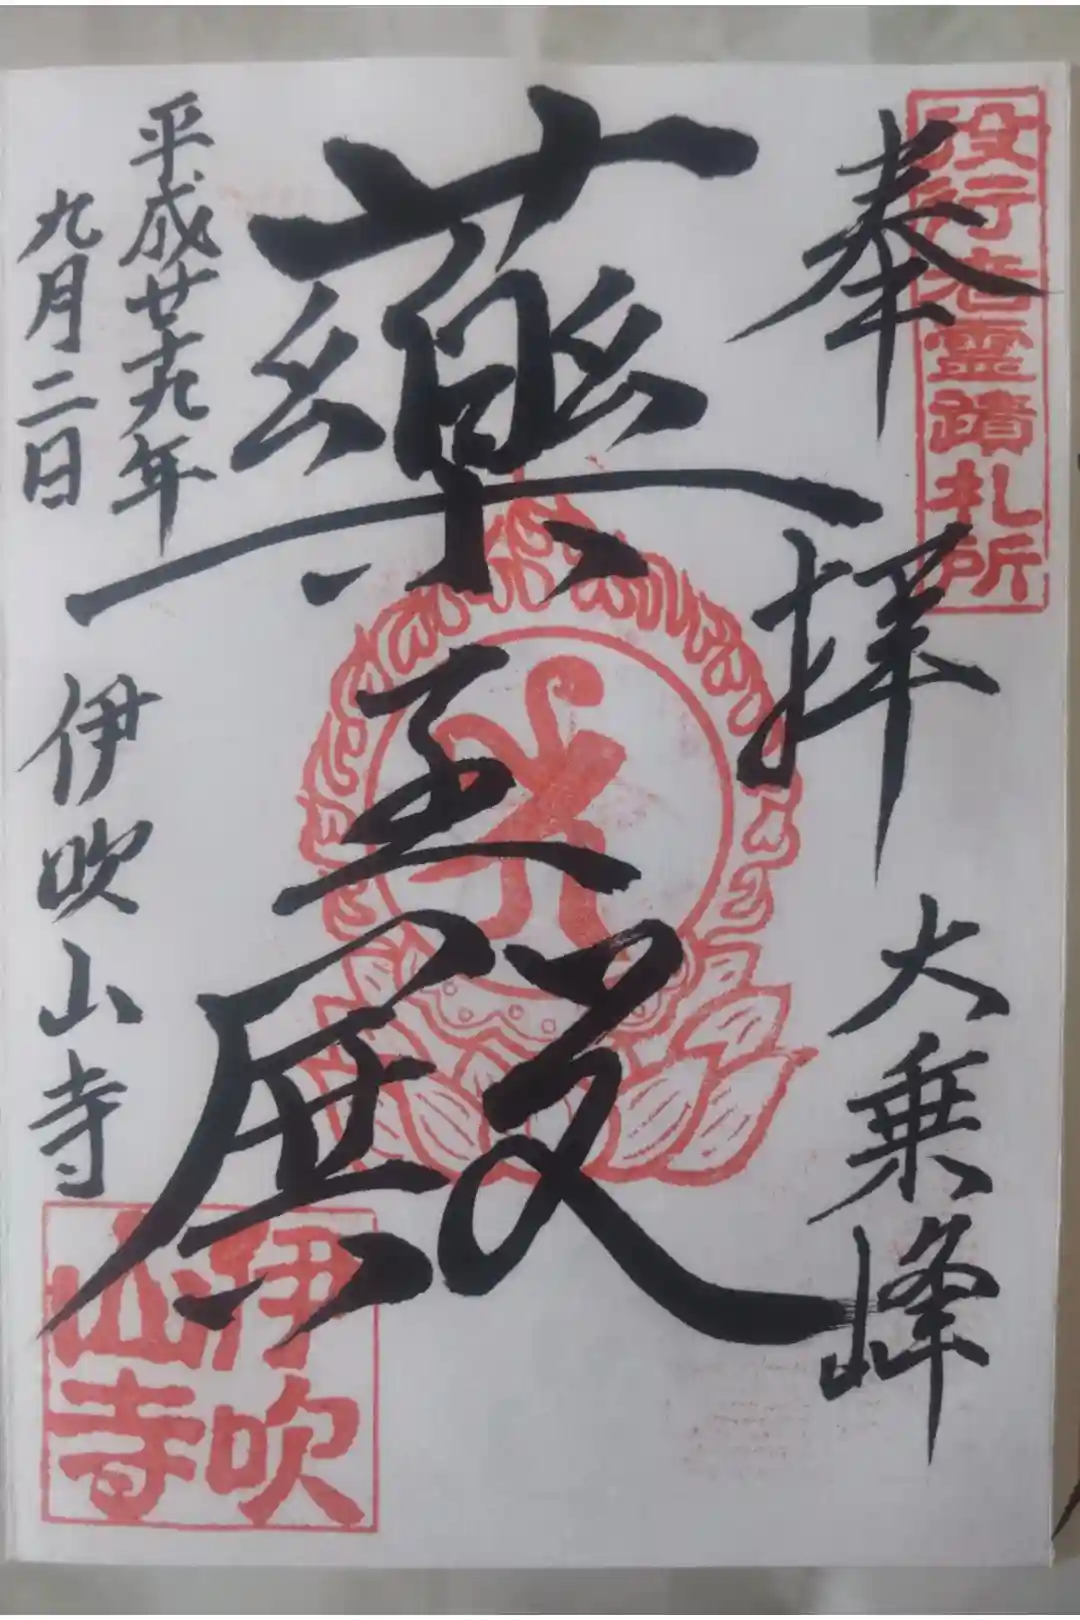 奉拝
大乗峰
役行者霊蹟札所
藥王殿
平成廿九年
九月二日
伊吹山寺
伊吹
山寺